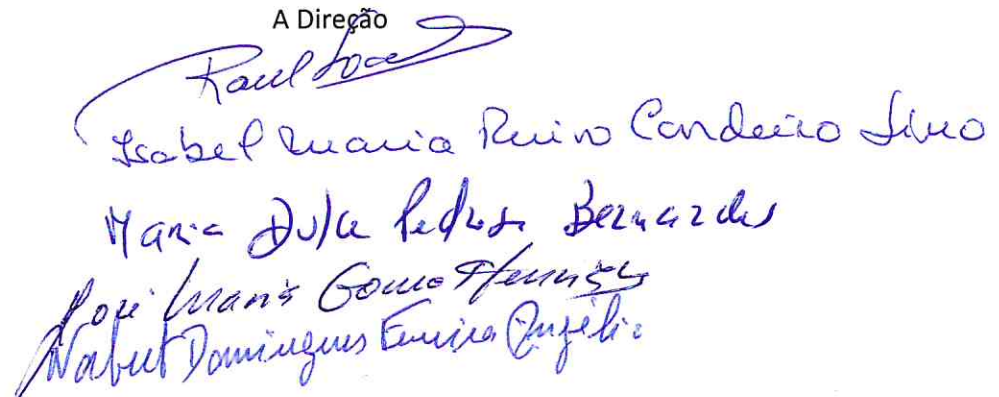 A Direção
Raul
Isabel Maria Ruivo Cardeiro
Maria Dulce Pedrosa Bernardes
José Maria Gomes Henriques
Norbert Domingues Ferreira Angélic